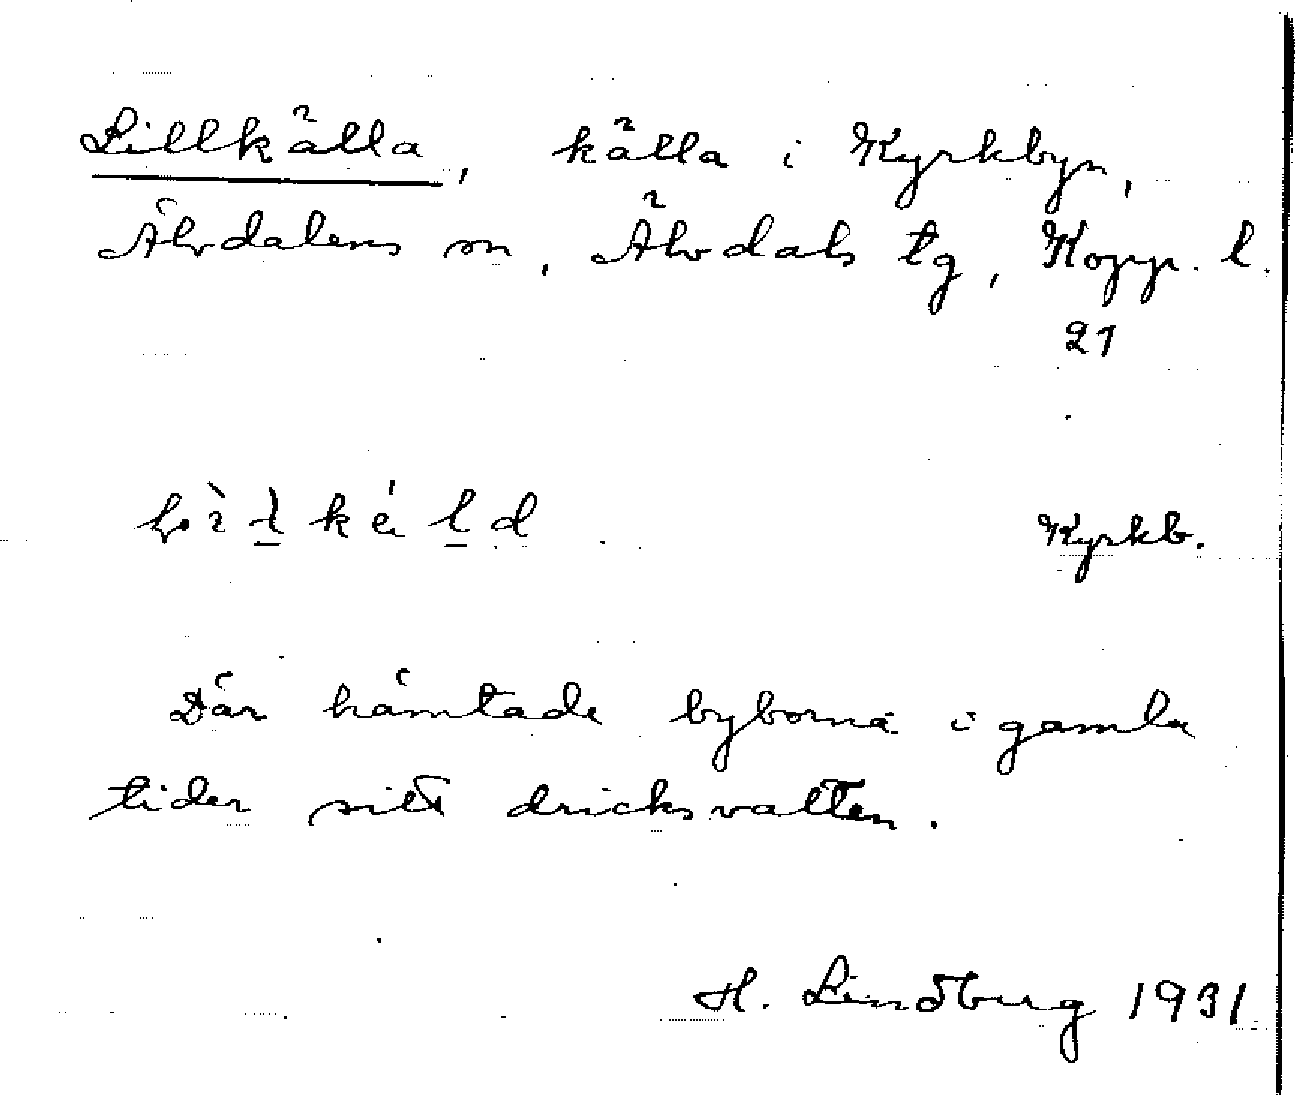 Lillkälla, källa i Kyrkbyn,
Älvdalens sn, Älvdals tg, Kopp. l.
21
Kyrkb.
Där hämtade byborna i gamla
tider sitt dricksvatten.
H. Lindberg 1931